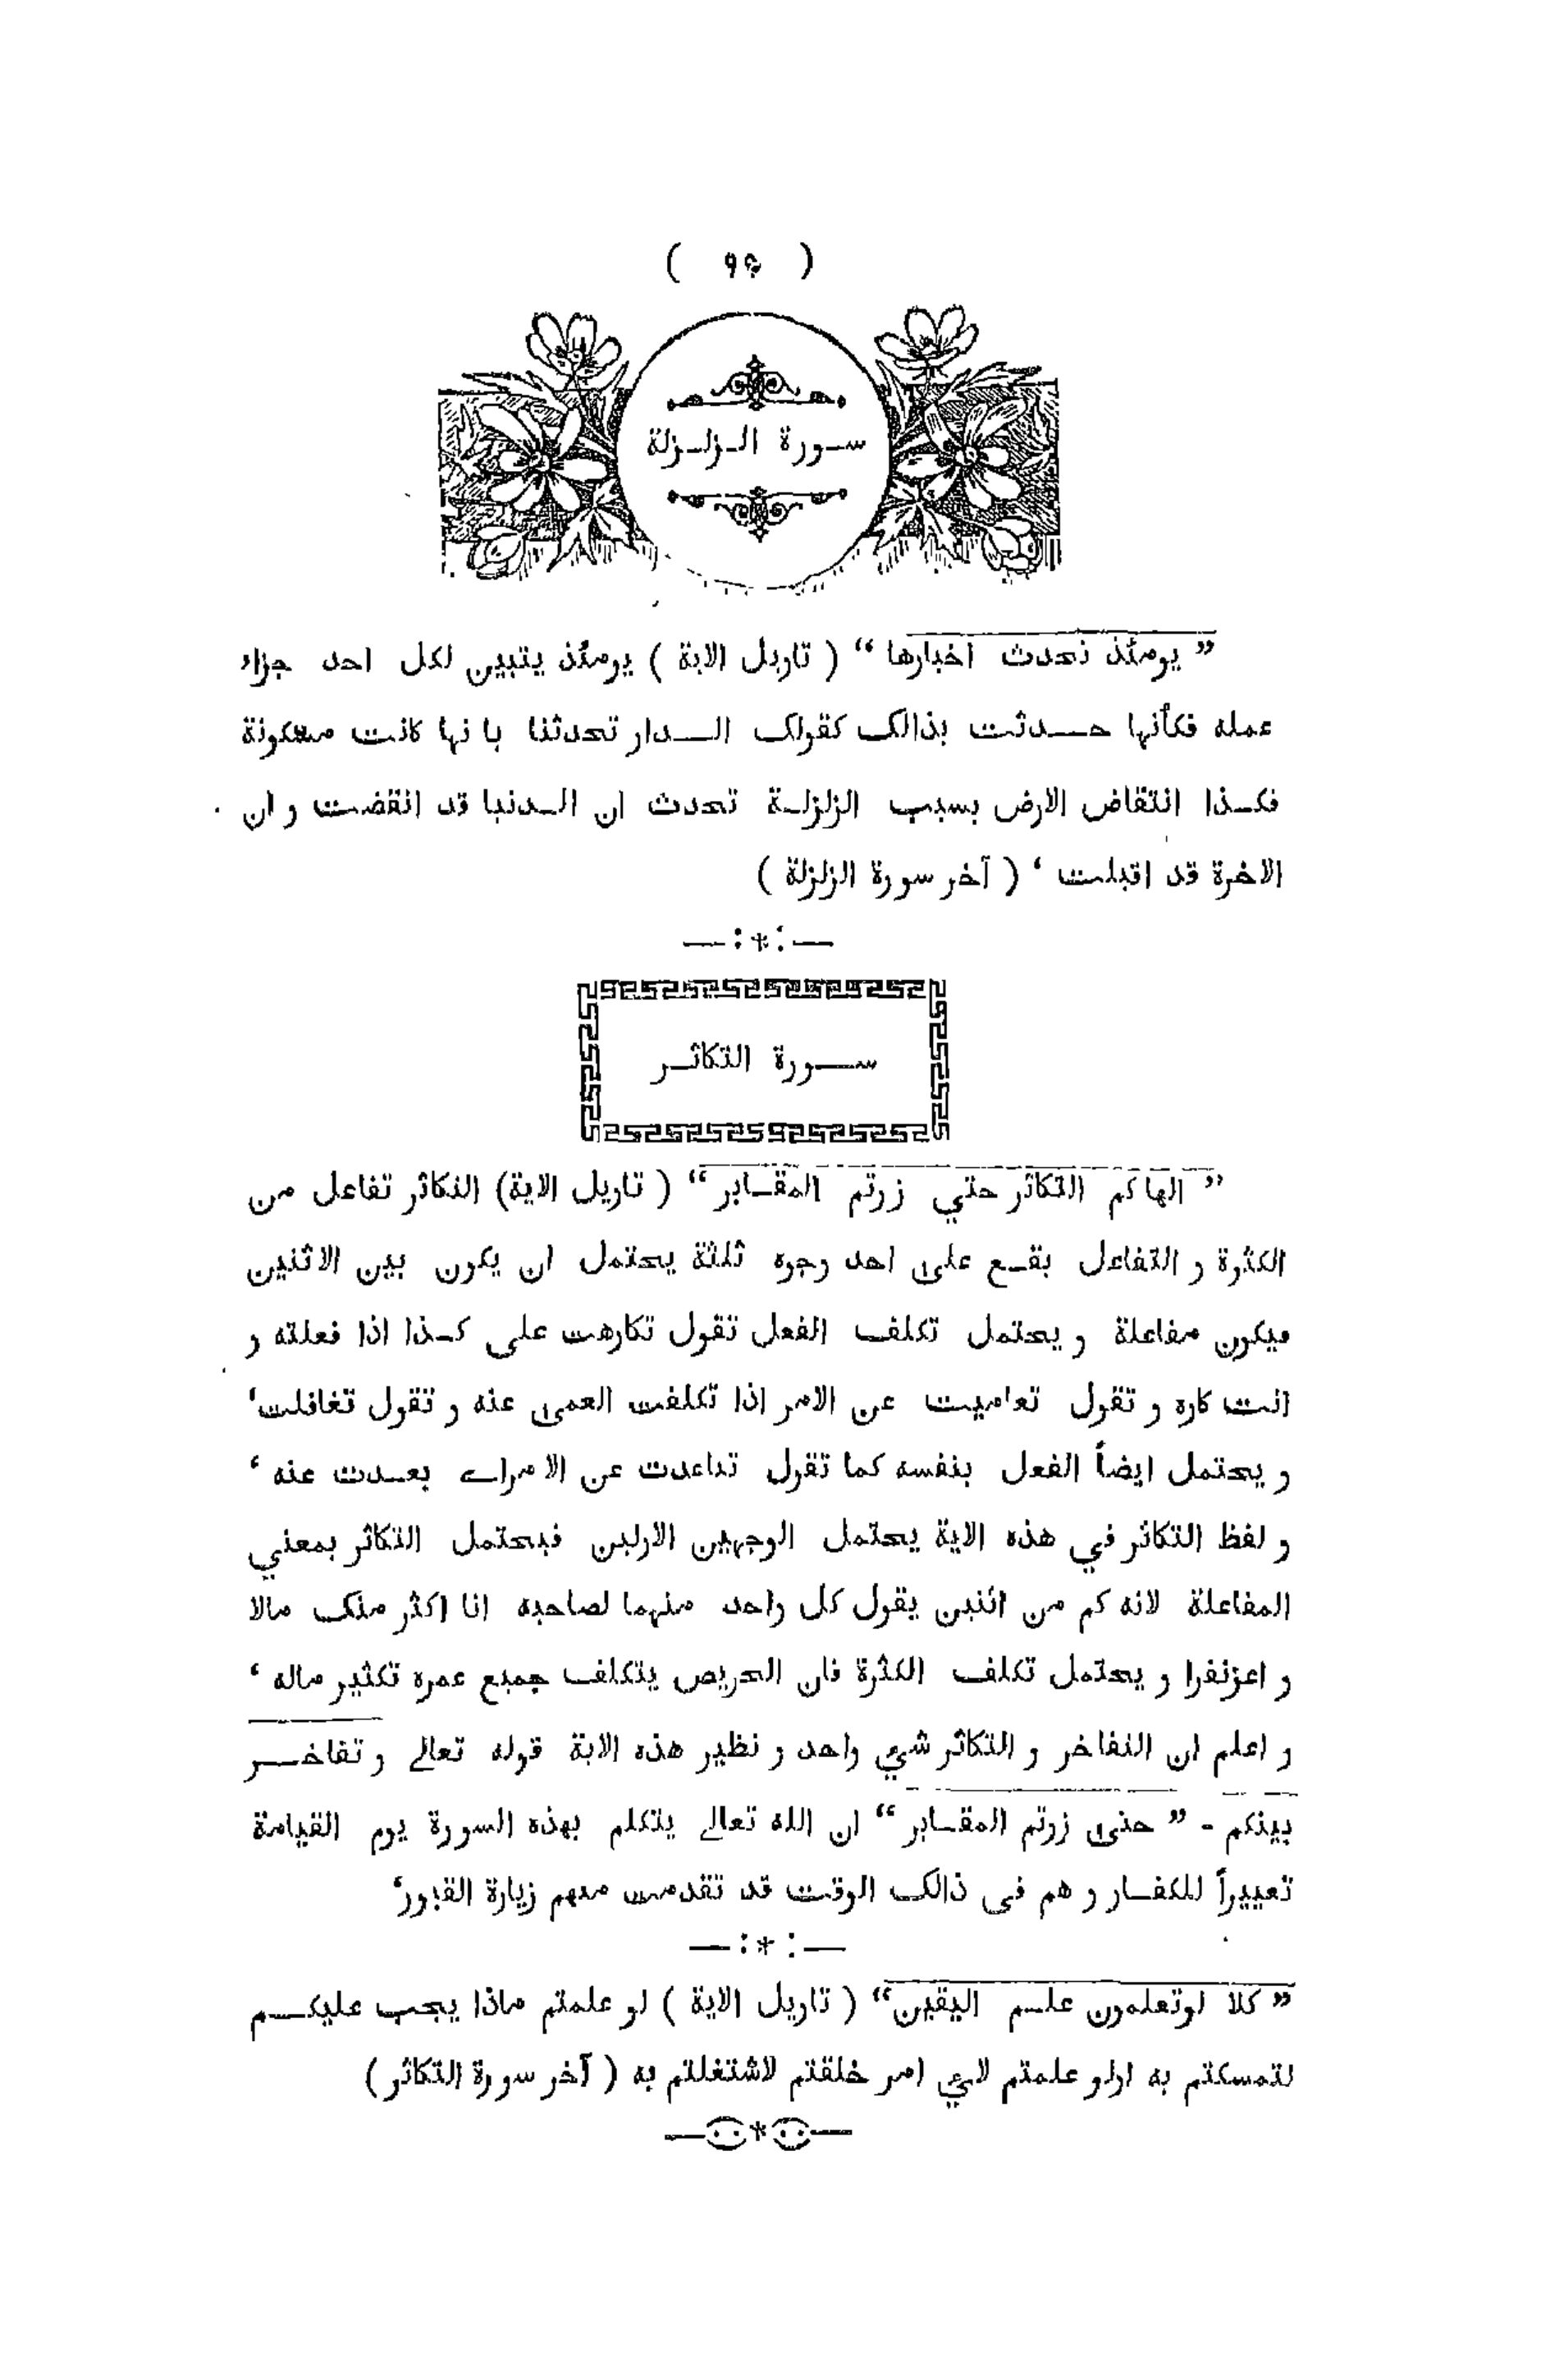 ( ٩۴ )
ســورة الـزلـزلة
” يومئذ تحدث اخبارها “ ( تاويل الاية ) يومئذ يتبين لكل احد جزاء
عمله فكأنها حــدثت بذالک كقولک الــدار تحدثنا با نها كانت مسكونة
فكـذا انتقاض الارض بسبب الزلزلـة تحدث ان الـدنيا قد انقضت و ان
الاخرة قد اقبلت ‘ ( آخر سورة الزلزلة )
—:*:—
ســورة التكاثـر
” الها كم التكاثر حتي زرتم المقـابر “ ( تاويل الاية) التكاثر تفاعل من
الكثرة و التفاعل يقـع على احد وجوه ثلثة يحتمل ان يكون بين الاثنين
فيكون مفاعلة و يحتمل تكلف الفعل تقول تكارهت على كـذا اذا فعلته و
انت كاره و تقول تعاميت عن الامر اذا تكلفت العمى عنه و تقول تغافلت‘
و يحتمل ايضاً الفعل بنفسه كما تقول تباعدت عن الامراے بعـدت عنه ‘
و لفظ التكاثر في هذه الاية يحتمل الوجهين الاولين فيحتمل التكاثر بمعني
المفاعلة لانه كم من اثنين يقول كل واحد منهما لصاحبه انا اكثر منک مالا
و اعزنفرا و يحتمل تكلف الكثرة فان الحريص يتكلف جميع عمره تكثير ماله ‘
و اعلم ان التفاخر و التكاثر شي واحد و نظير هذه الاية قوله تعالے و تفاخــر
بينكم - ” حتى زرتم المقـابر “ ان الله تعالے يتكلم بهذه السورة يوم القيامة
تعييراً للكفـار و هم فى ذالک الوقت قد تقدمت منهم زيارة القبور‘
—:*:—
” كلا لوتعلمون علـم اليقين“ ( تاويل الاية ) لو علمتم ماذا يجب عليكــم
لتمسكتم به اولو علمتم لاي امر خلقتم لاشتغلتم به ( آخر سورة التكاثر )